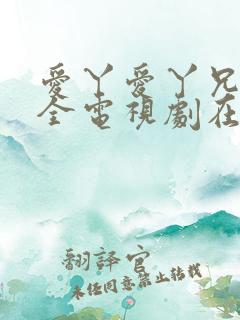 愛丫愛丫兄
全電視劇在
翻譯官
未經同意禁止轉載